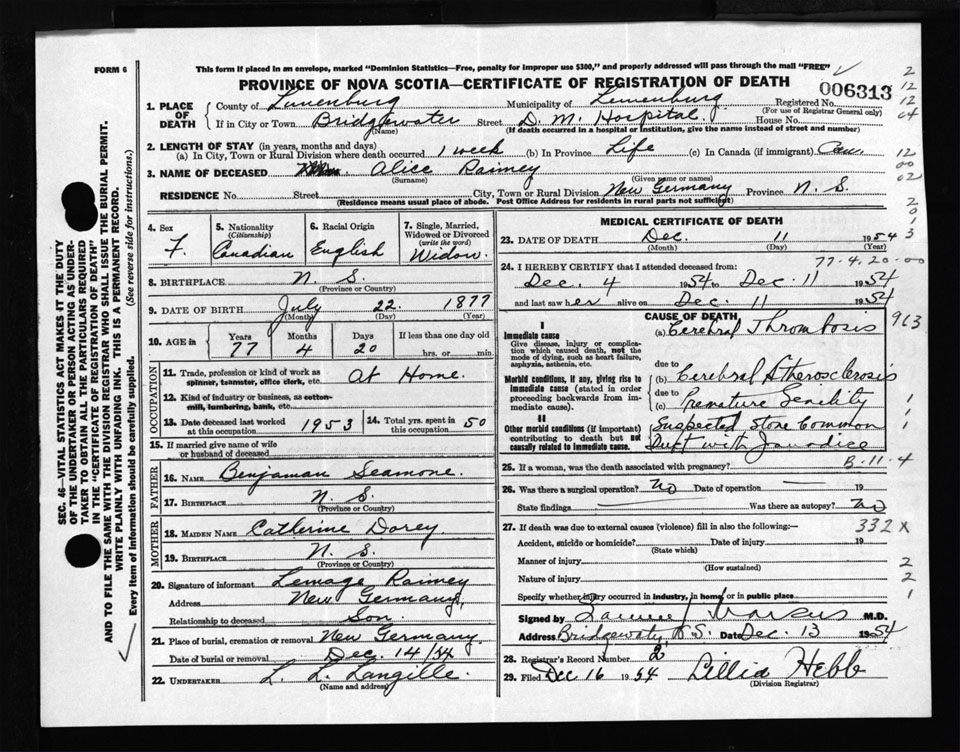 FORM 6
This form if placed in an envelope, marked "Dominion Statistics—Free, penalty for improper use $300," and properly addressed will pass through the mail "FREE"
PROVINCE OF NOVA SCOTIA—CERTIFICATE OF REGISTRATION OF DEATH
006313
1. PLACE OF DEATH
County of Lunenburg Municipality of Lunenburg Registered No.
(For use of Registrar General only)
If in City or Town Bridgewater Street D. M. Hospital House No.
(Name) (If death occurred in a hospital or institution, give the name instead of street and number)
2. LENGTH OF STAY (in years, months and days)
(a) In City, Town or Rural Division where death occurred 1 week (b) In Province Life (c) In Canada (if immigrant) Can.
3. NAME OF DECEASED Alice Raimey
(Surname) (Given name or names)
RESIDENCE No. Street City, Town or Rural Division New Germany Province N. S.
(Residence means usual place of abode. Post Office Address for residents in rural parts not sufficient)
2
12
12
04
12
00
02
2
0
1
3
4. Sex
F.
5. Nationality
(Citizenship)
Canadian
6. Racial Origin
English
7. Single, Married, Widowed or Divorced
(write the word)
Widow.
8. BIRTHPLACE N. S.
(Province or Country)
9. DATE OF BIRTH July 22. 1877
(Month) (Day) (Year)
10. AGE in
Years Months Days If less than one day old
77 4 20 hrs. or min.
OCCUPATION
11. Trade, profession or kind of work as spinner, teamster, office clerk, etc. At Home.
12. Kind of industry or business, as cotton-mill, lumbering, bank, etc.
13. Date deceased last worked at this occupation 1953
14. Total yrs. spent in this occupation 50
15. If married give name of wife or husband of deceased
FATHER
16. NAME Benjaman Seamone.
17. BIRTHPLACE N. S.
(Province or Country)
MOTHER
18. MAIDEN NAME Catherine Dorey
19. BIRTHPLACE N. S.
(Province or Country)
20. Signature of informant Lemage Raimey
Address New Germany,
Relationship to deceased Son.
21. Place of burial, cremation or removal New Germany
Date of burial or removal Dec. 14/54
22. UNDERTAKER L. L. Langille.
(Name and address)
MEDICAL CERTIFICATE OF DEATH
23. DATE OF DEATH Dec. 11 1954
(Month) (Day) (Year)
77-4.20-00
24. I HEREBY CERTIFY that I attended deceased from:
Dec. 4 1954 to Dec 11 1954
and last saw her alive on Dec. 11 1954
CAUSE OF DEATH
I
Immediate cause
Give disease, injury or complication which caused death, not the mode of dying, such as heart failure, asphyxia, asthenia, etc.
(a) Cerebral Thrombosis
913
due to
Morbid conditions, if any, giving rise to immediate cause (stated in order proceeding backwards from immediate cause).
(b) Cerebral Atherosclerosis
due to
(c) Premature Senility
II
Other morbid conditions (if important) contributing to death but not causally related to immediate cause.
Suspected Stone Common
Duct with Jaundice
1
1
1
25. If a woman, was the death associated with pregnancy?
B-11-4
26. Was there a surgical operation? No Date of operation — 19
State findings — Was there an autopsy? No
27. If death was due to external causes (violence) fill in also the following:—
332 x
Accident, suicide or homicide? Date of injury 19
(State which)
Manner of injury
(How sustained)
2
Nature of injury
2
Specify whether injury occurred in industry, in home, or in public place
1
Signed by Samuel Marcus M.D.
Address Bridgewater, N.S. Date Dec. 13 1954
28. Registrar's Record Number 2
29. Filed Dec 16 1954 Lillia Hebb
(Division Registrar)
SEC. 46—VITAL STATISTICS ACT MAKES IT THE DUTY
OF THE UNDERTAKER OR PERSON ACTING AS UNDER-
TAKER TO OBTAIN ALL THE PARTICULARS REQUIRED
IN THE "CERTIFICATE OF REGISTRATION OF DEATH"
AND TO FILE THE SAME WITH THE DIVISION REGISTRAR WHO SHALL ISSUE THE BURIAL PERMIT.
WRITE PLAINLY WITH UNFADING INK. THIS IS A PERMANENT RECORD.
Every item of information should be carefully supplied. (See reverse side for instructions.)